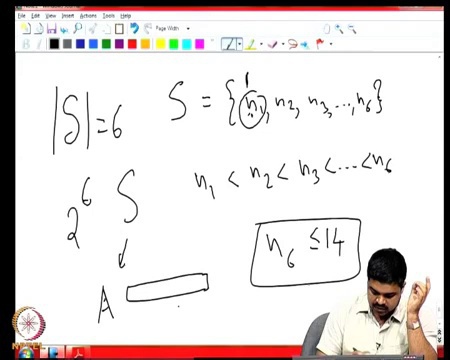 File Edit View Insert Actions Tools Help
Page Width
|S| = 6 S = {n₁, n₂, n₃, ..., n₆}
1
n₁ < n₂ < n₃ < ... < n₆
2⁶ S
n₆ ≤ 14
A